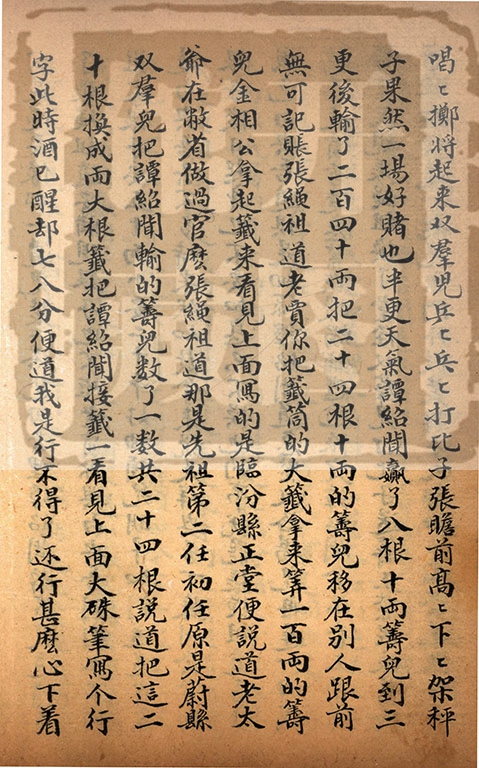 唱〻擲将起来双羣児兵〻兵〻打比子張瞻前髙〻下〻架秤
子果然一場好賭也半更天氣譚紹聞贏了八根十両籌兒到三
更後輸了二百四十両把二十四根十両的籌兒移在别人跟前
無可記賬張繩祖道老賈你把籤筒的大籤拿来筭一百両的籌
兒金相公拿起籤来看見上面寫的是臨汾縣正堂便說道老太
爺在敝省做過官麽張繩祖道那是先祖第二任初任原是蔚縣
双羣兒把譚紹聞輸的籌兒数了一数共二十四根說道把這二
十根換成両大根籤把譚紹聞接籤一看見上面大硃筆寫个行
字此時酒已醒却七八分便道我是行不得了还行甚麽心下着